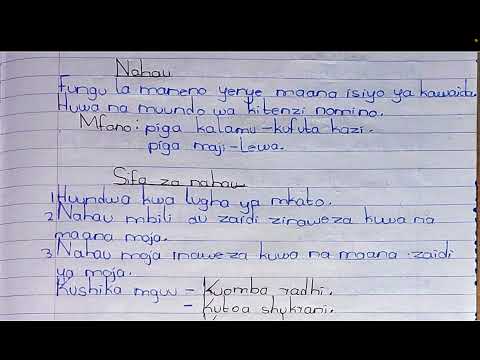 Nahau
Fungu la maneno yenye maana isiyo ya kawaida.
Huwa na muundo wa kitenzi nomino.
Mfano: piga kalamu - kufuta kazi.
piga maji - Lewa.
Sifa za nahau
1 Huundwa kwa lugha ya mkato.
2 Nahau mbili au zaidi zinaweza kuwa na
maana moja.
3 Nahau moja inaweza kuwa na maana zaidi
ya moja.
Kushika mguu - Kuomba radhi.
- Kutoa shukrani.